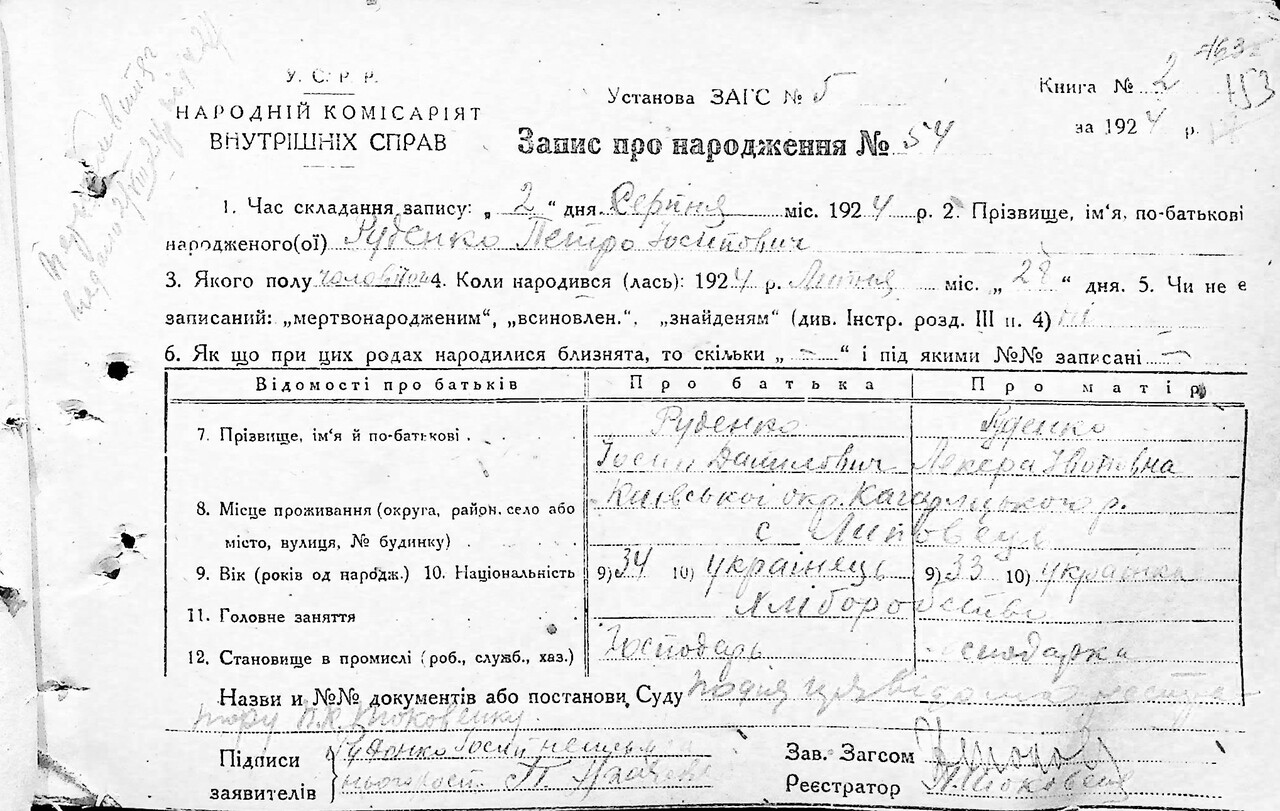 463
153
У. С. Р. Р.
НАРОДНІЙ КОМІСАРІЯТ
ВНУТРІШНІХ СПРАВ
Установа ЗАГС № 5
Книга № 2
за 1924 р.
Запис про народження № 54
1. Час складання запису: „ 2 “ дня Серпня міс. 1924 р. 2. Прізвище, ім‘я, по-батькові
народженого(ої) Руденко Петро Іосипович
3. Якого полу чоловічого 4. Коли народився (лась): 1924 р. Липня міс. „ 28 “ дня. 5. Чи не є
записаний: „мертвонародженим“, „всиновлен.“, „знайденям“ (див. Інстр. розд. III п. 4) ні
6. Як що при цих родах народилися близнята, то скільки „ — “ і під якими №№ записані —
Відомості про батьків Про батька Про матір
7. Прізвище, ім‘я й по-батькові Руденко Руденко
Іосип Данилович Лекера
8. Місце проживання (округа, район, село або Київської окр. Кагарлицького р.
місто, вулиця, № будинку) с Липовець
9. Вік (років од народж.) 10. Національність 9) 34 10) українець 9) 33 10) українка
11. Головне заняття Хліборобство
12. Становище в промислі (роб., служб., хаз.) Господарь сподарка
Назви и №№ документів або постанови Суду
Підписи Руденко Іосип
заявителів
Зав. Загсом
Реєстратор